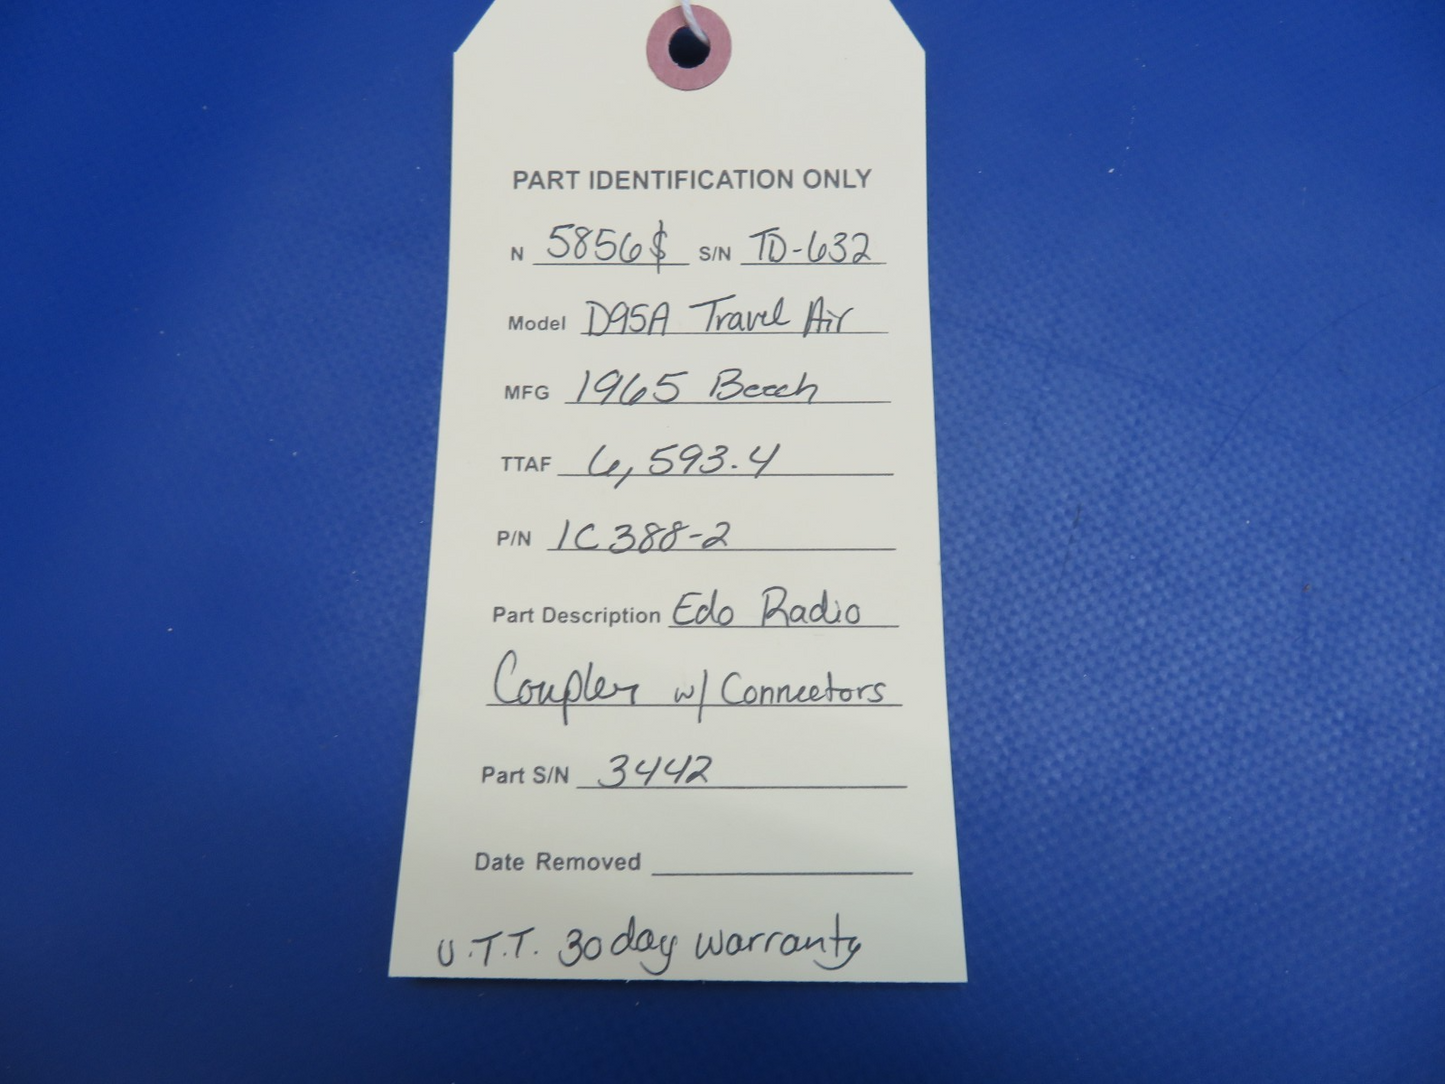 PART IDENTIFICATION ONLY
N 5856$ S/N TD-632
Model D95A Travel Air
MFG 1965 Beech
TTAF 6,593.4
P/N 1C388-2
Part Description Edo Radio
Coupler w/ Connectors
Part S/N 3442
Date Removed
U.T.T. 30 day warranty